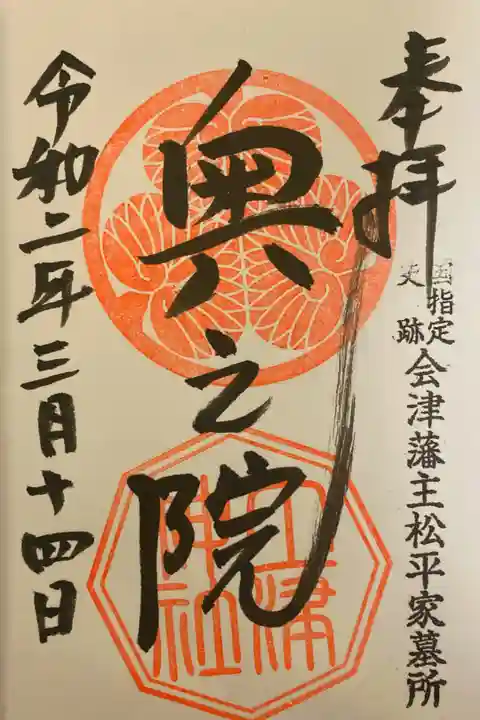 奉拝
国指定
史跡
会津藩主松平家墓所
奥之院
土津
神社
令和二年三月十四日